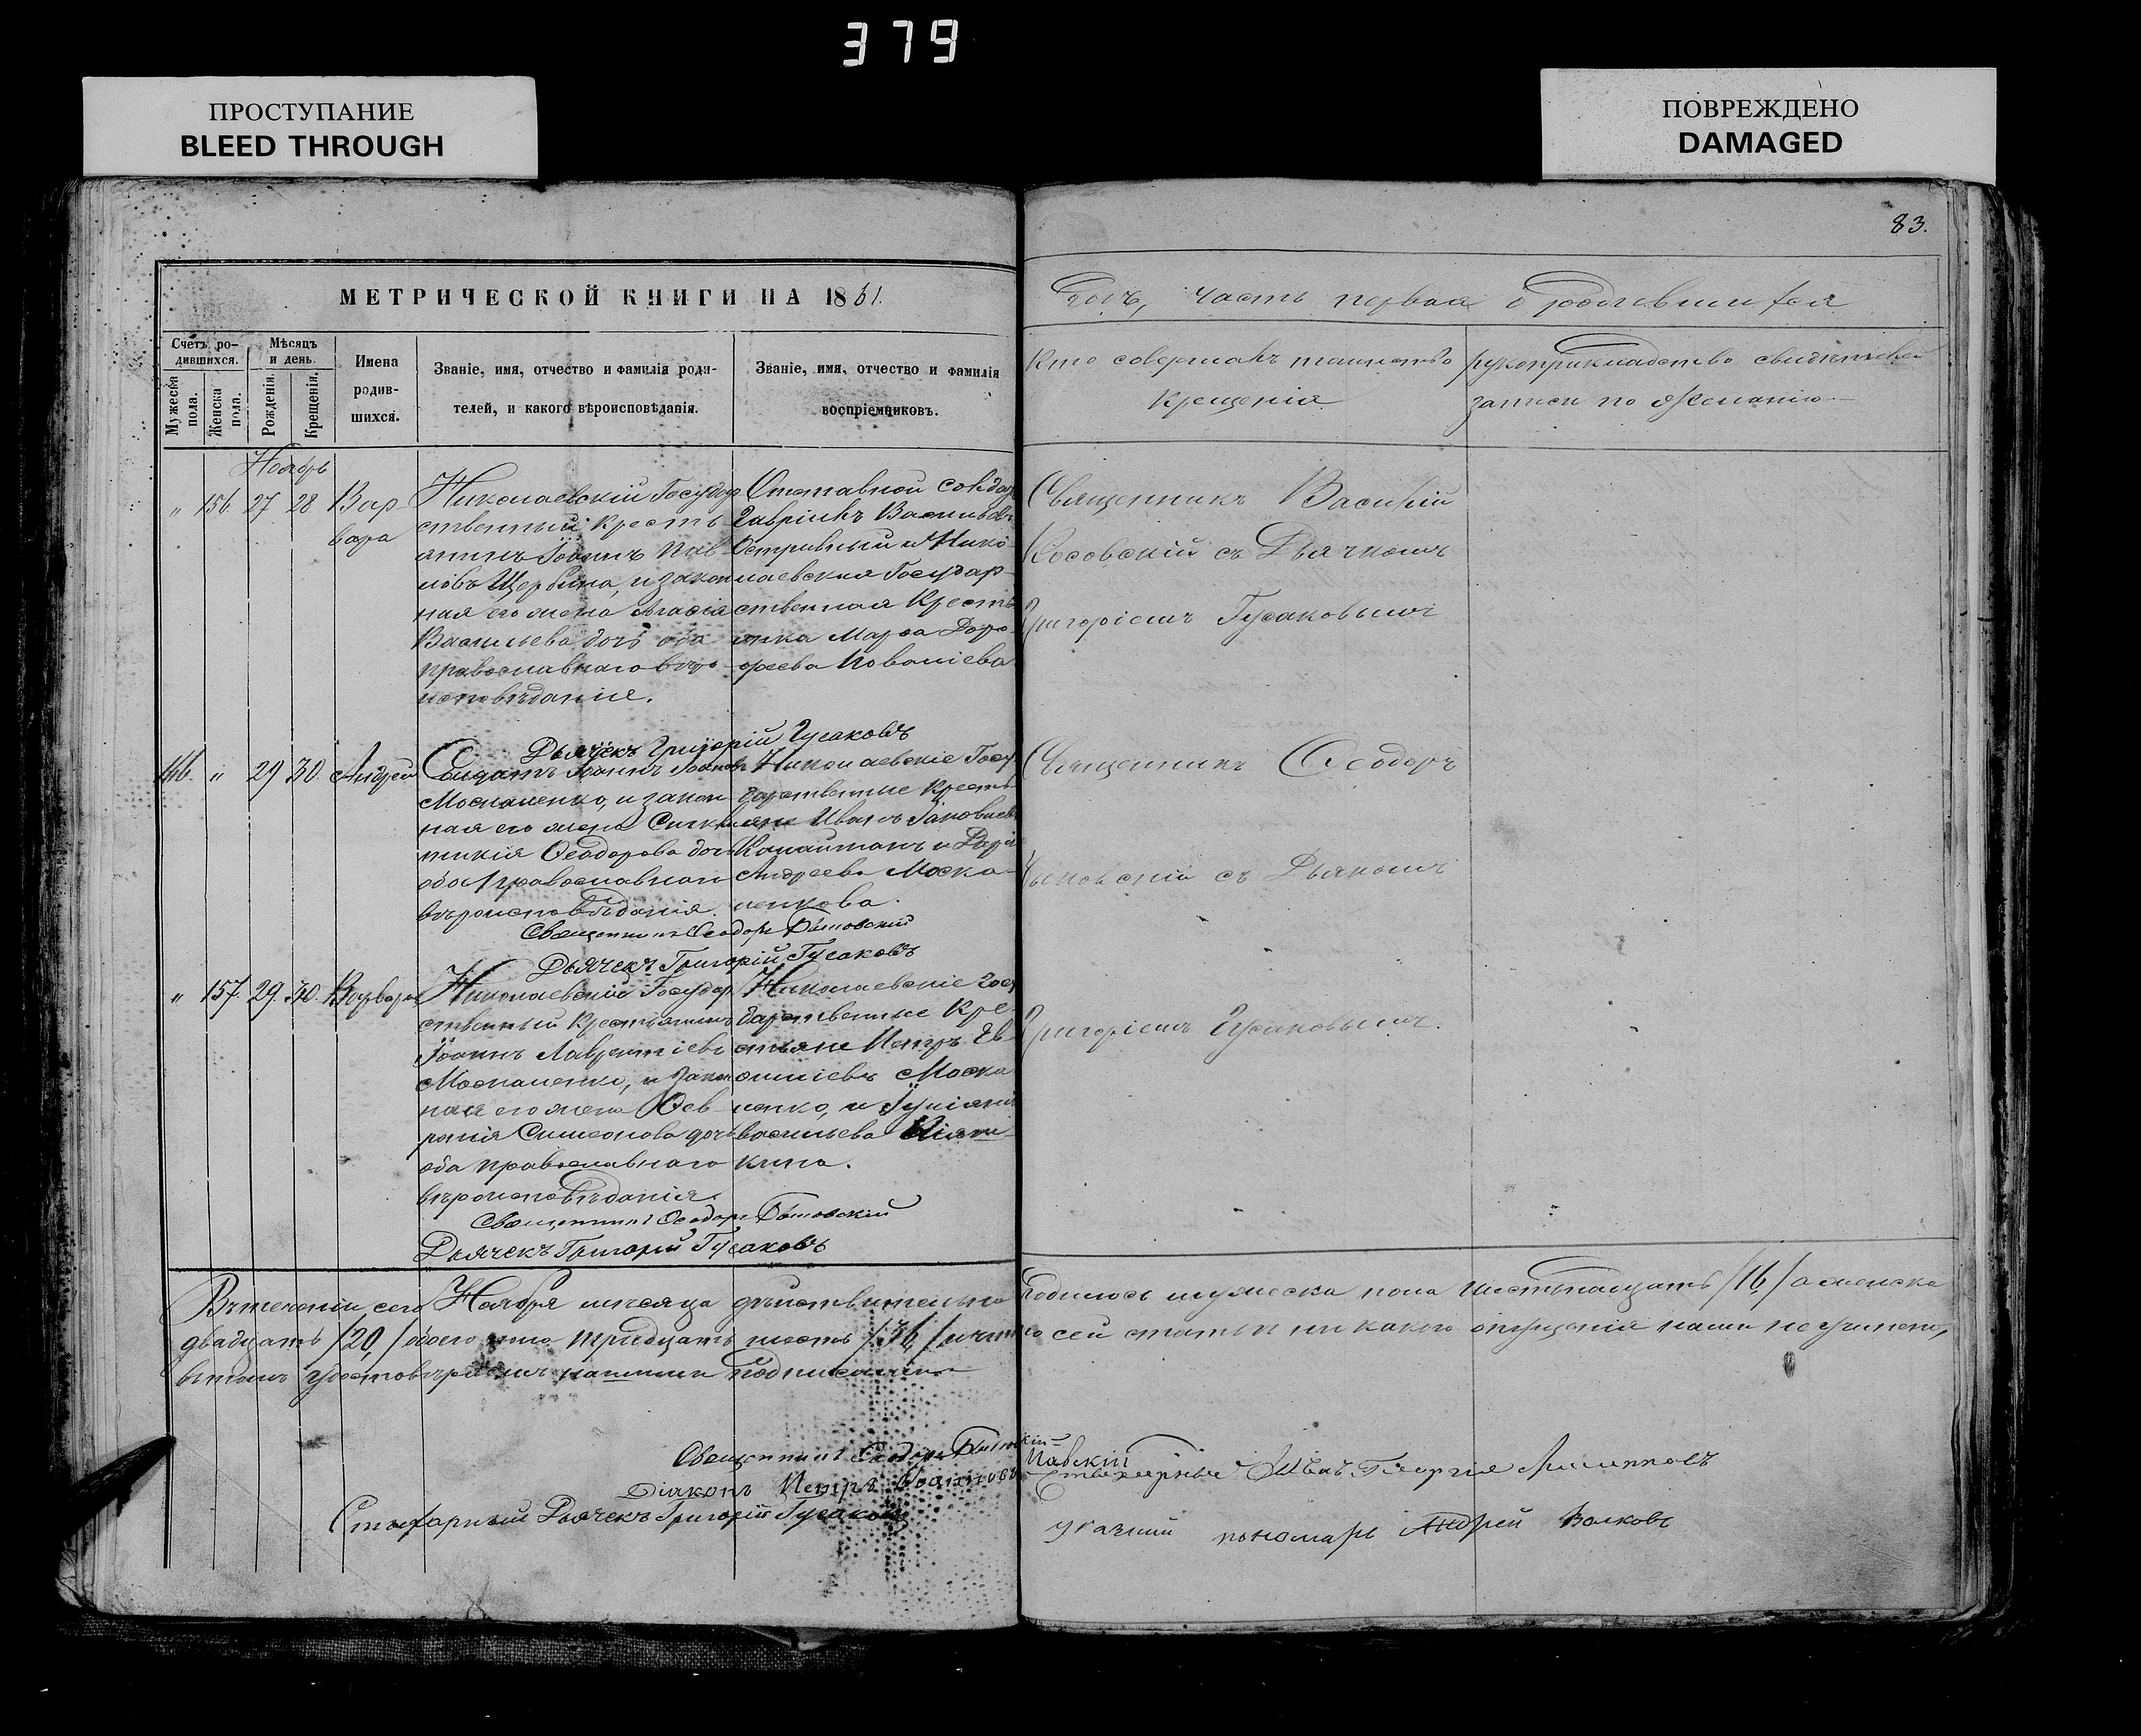 379
ПРОСТУПАНИЕ
BLEED THROUGH
ПОВРЕЖДЕНО
DAMAGED
83.
МЕТРИЧЕСКОЙ КНИГИ НА 1861.
Годъ, часть первая о родившихся
Счетъ ро-
дившихся.
Мужеска
пола.
Женска
пола.
Мѣсяцъ
и день.
Рожденія.
Крещенія.
Имена
родив-
шихся.
Званіе, имя, отчество и фамилія роди-
телей, и какого вѣроисповѣданія.
Званіе, имя, отчество и фамилія
воспріемниковъ.
Кто совершалъ таинство
крещенія
рукоприкладство свидѣтелей
записи по желанію
Ноябрь
„ 156. 27 28 Вар-
вара
Николаевскій Государ
ственный кресть-
янинъ Іоаннъ Пав-
ловъ Щербина, и закон
ная его жена Агафія
Васильева дочь оба
православнаго вѣро-
исповѣданія.
Отставной солдатъ
Гавріилъ Васильевъ
и Нико-
лаевская Государ-
ственная Кресть
янка Марфа Доро-
феева
Священникъ Василій
Косовскій съ Дьячкомъ
Григоріемъ Гусаковымъ
Дьячекъ Григорій Гусаковъ
„ 29 30. Андрей
Солдатъ Іоаннъ
Москаленко, и закон
ная его жена
Ѳеодорова дочь
оба православнаго
вѣроисповѣданія.
Николаевскіе Госу
дарственные кресть-
яне Иванъ Яковлевъ
и Дарія
Андреева Моска-
ленкова.
Священникъ Ѳеодоръ
съ Дьякомъ
Григоріемъ Гусаковымъ.
Священникъ Ѳеодоръ
Дьячекъ Григорій Гусаковъ
„ 157. 29. 30. Варвара
Николаевскій Государ
ственный крестьянинъ
Іоаннъ Лаврентіевъ
Москаленко, и закон
ная его жена Фев-
ронія Симеонова дочь
оба православнаго
вѣроисповѣданія.
Николаевскіе Госу
дарственные кре-
стьяне Петръ Ев-
Моска
ленко, и Іуліанія
Васильева
кина.
Священникъ Ѳеодоръ
Дьячекъ Григорій Гусаковъ
Въ теченіи сего Ноября мѣсяца дѣйствительно родилось мужеска пола шестнадцать /16,/ а женска
двадцать /20,/ обоего пола тридцать шесть /36,/ сей статьи ни какого опущенія нами не учинено,
въ томъ удостовѣряемъ нашимъ подписомъ
Священникъ Ѳеодоръ
Діаконъ Петръ
Стихарный Дьячекъ Григорій Гусаковъ
Стихарный
пономарь Андрей Волковъ